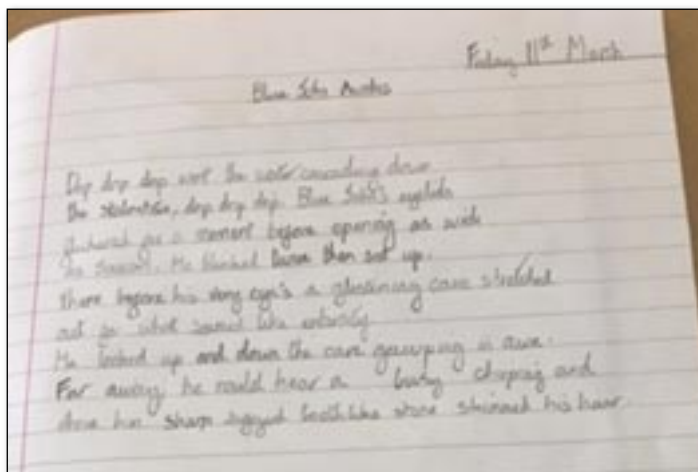 Friday 11th March
Blue John Awakes
Drip drip drip went the water cascading down
the stalactites, drip drip drip. Blue John's eyelids
fluttered for a moment before opening as wide
as He blinked twice then sat up.
There before his very eye's a gleaming cave stretched
out for what seemed like
He looked up and down the cave in awe.
Far away he could hear a and
above him sharp jagged teeth like stone his